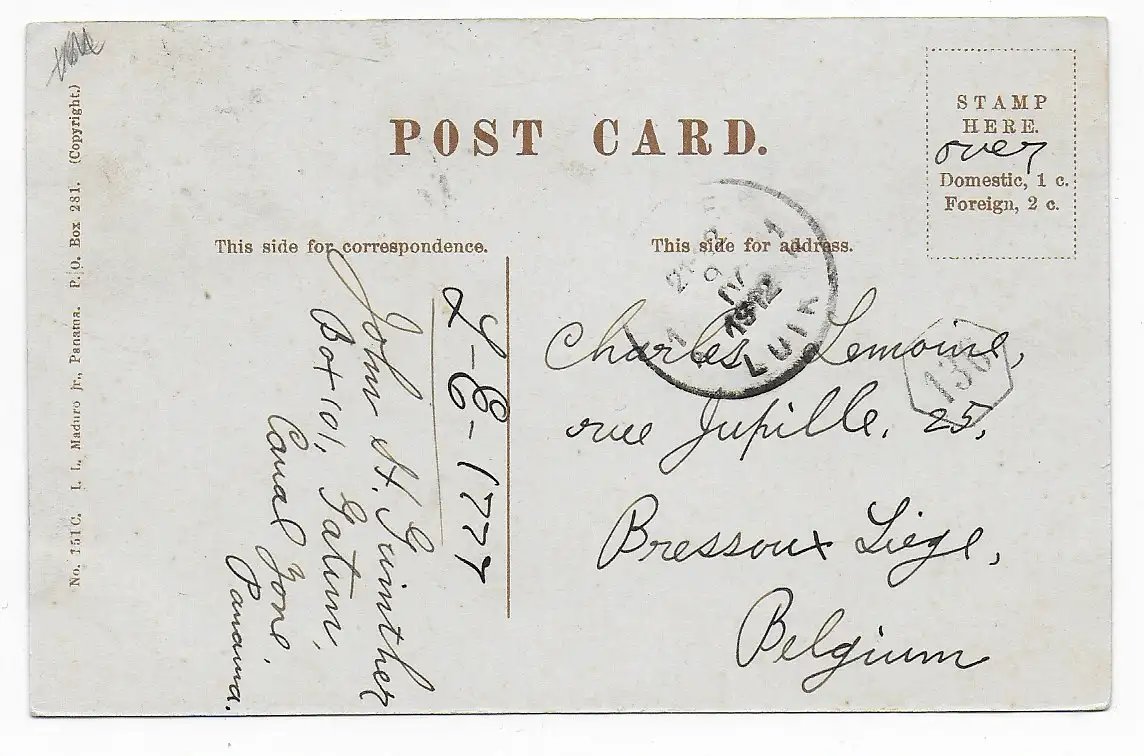 POST CARD.
STAMP
HERE.
over
Domestic, 1 c.
Foreign, 2 c.
This side for correspondence.
This side for address.
L-E-1777
John H. Guinther
Box 101, Gatun,
Canal Zone.
Panama.
Charles Lemoine,
rue Jupille, 25,
Bressoux Liége,
Belgium
1912
LUIK
136
No. 151C. I. L. Maduro jr., Panama. P. O. Box 281. (Copyright.)